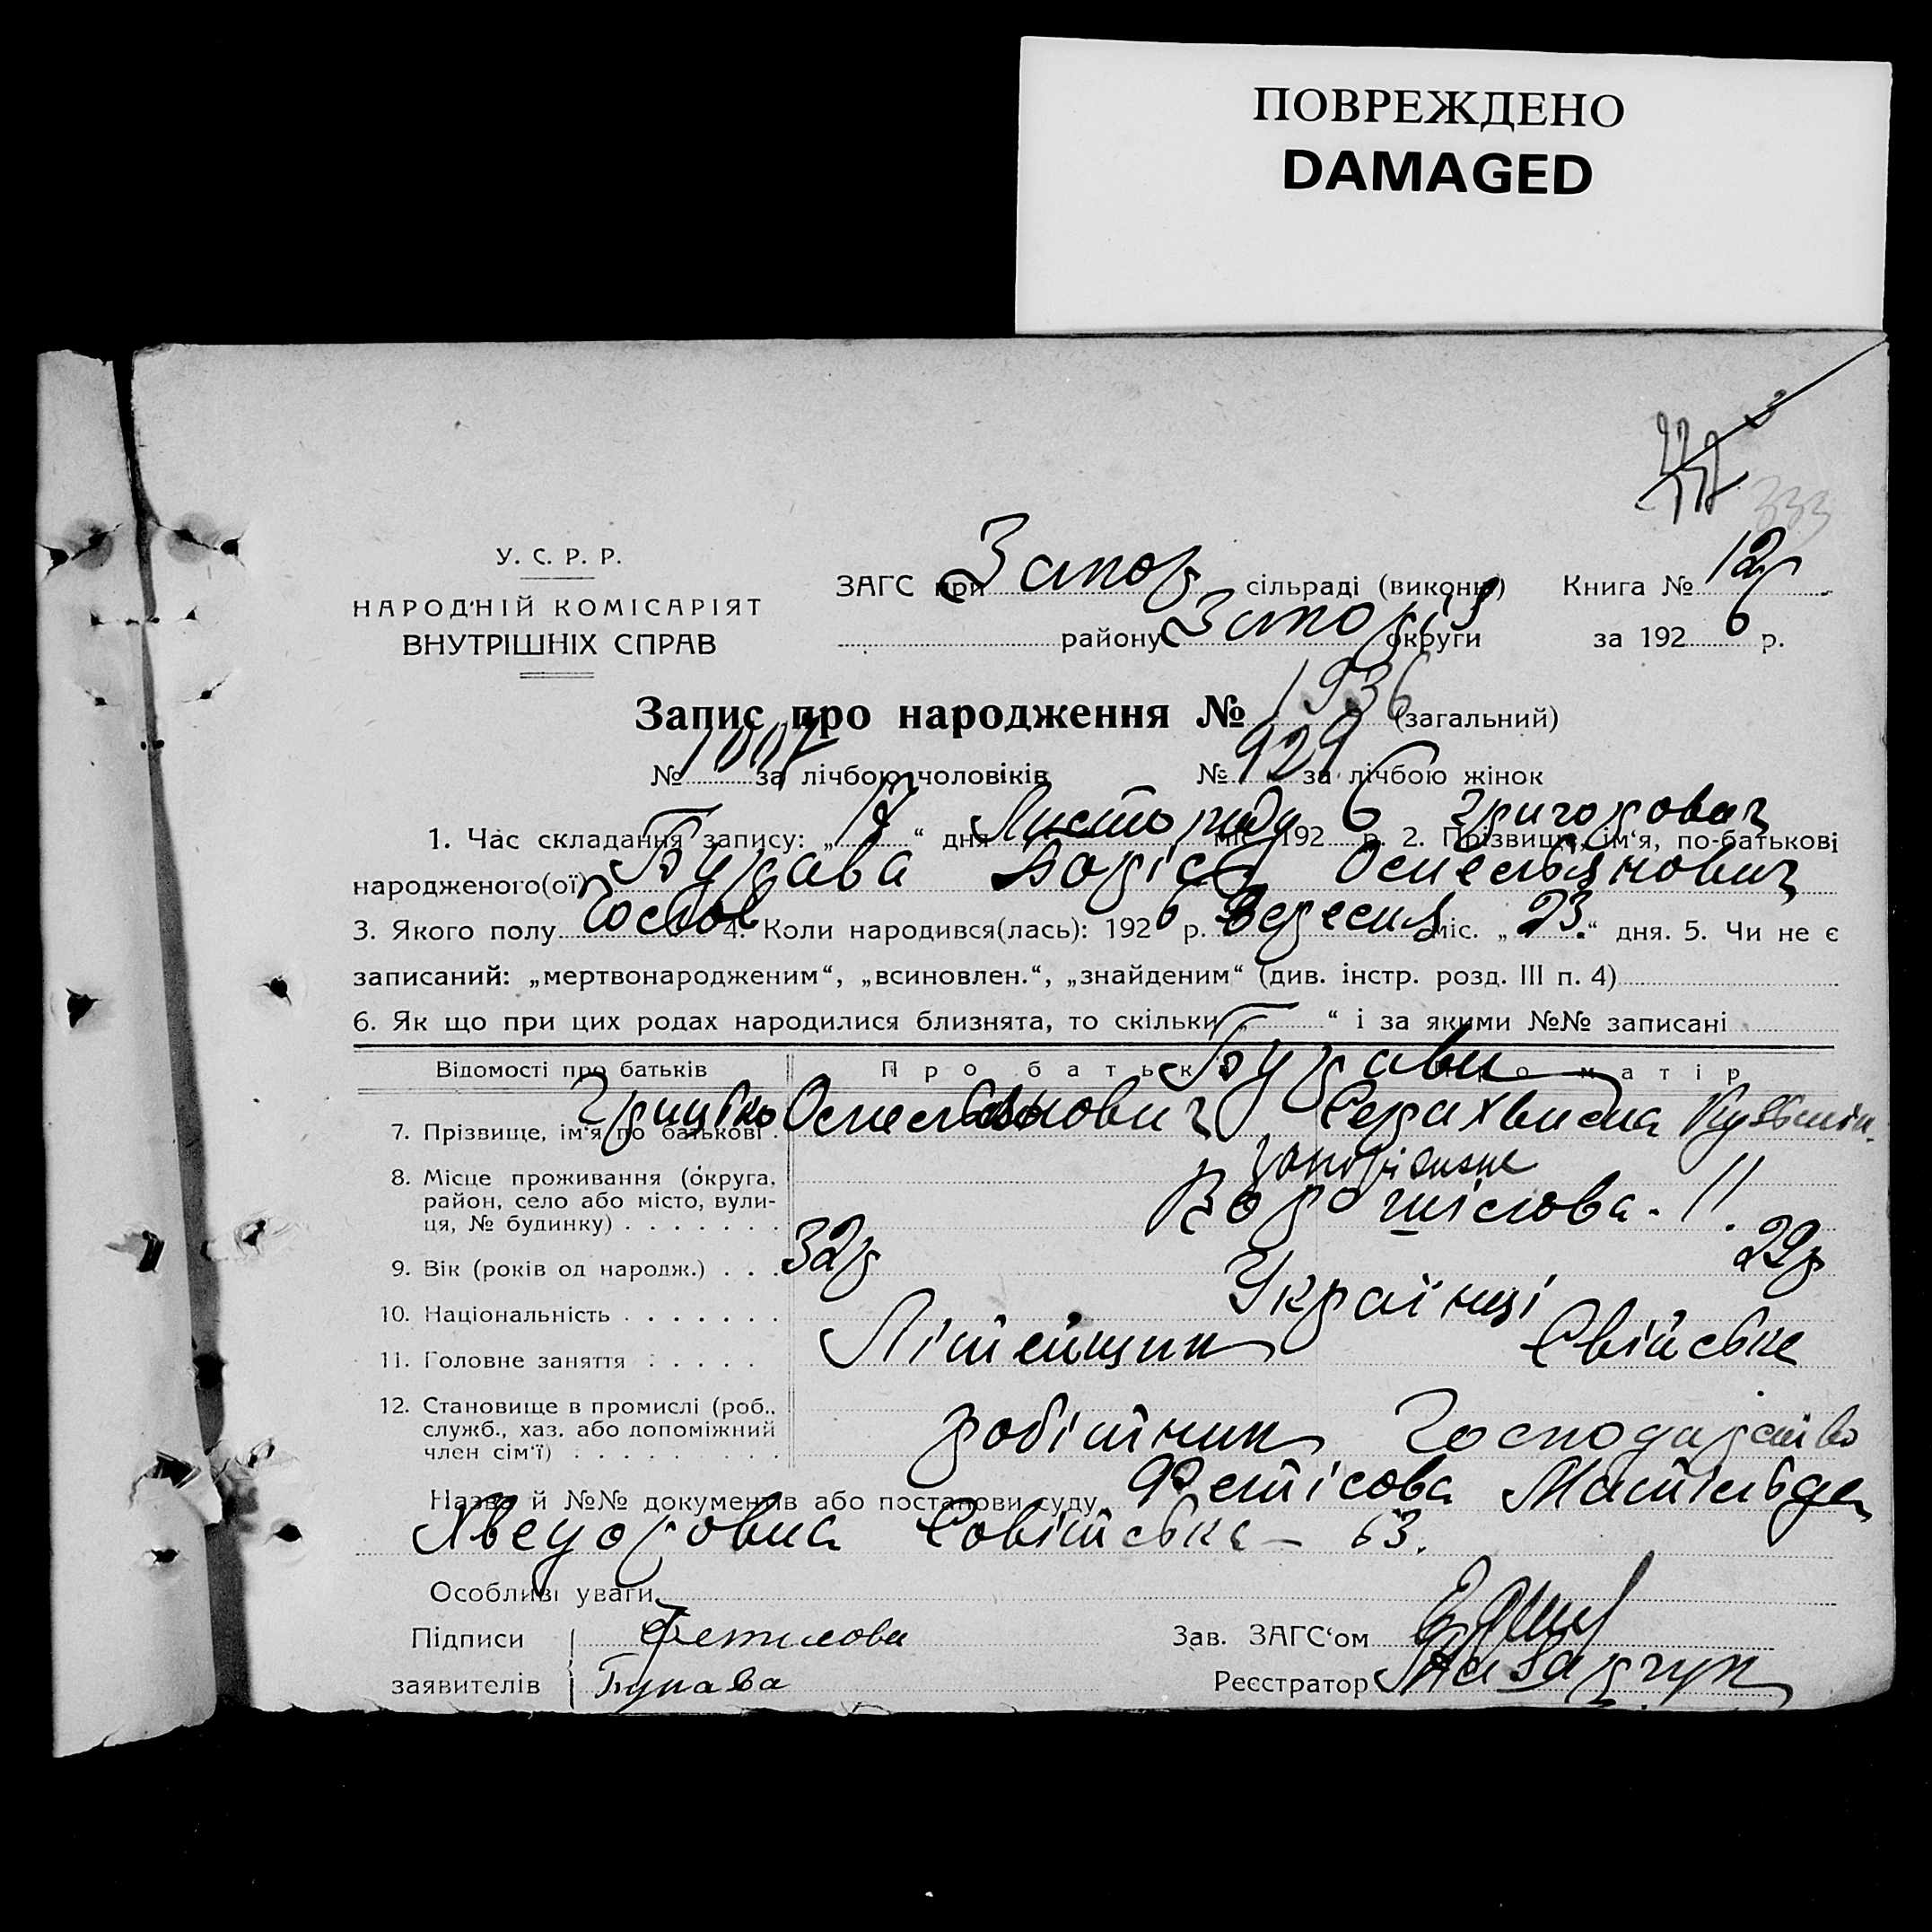 ПОВРЕЖДЕНО
DAMAGED
333
У. С. Р. Р.
НАРОДНІЙ КОМІСАРІЯТ
ВНУТРІШНІХ СПРАВ
ЗАГС при Запор сільраді (виконк) Книга № 12
району Запоріз округи за 1926 р.
Запис про народження № 1936 (загальний)
№ 1007 за лічбою чоловіків № 929 за лічбою жінок
Григорович
1. Час складання запису: „17“ дня Листопаду міс. 1926 р. 2. Прізвище, ім‘я, по-батькові
народженого(ої) Бурава Боріс Омельянович
3. Якого полу 4. Коли народився(лась): 1926 р. Вересня міс. „23.“ дня. 5. Чи не є
записаний: „мертвонародженим“, „всиновлен.“, „знайденим“ (див. інстр. розд. III п. 4)
6. Як що при цих родах народилися близнята, то скільки „ “ і за якими №№ записані
Відомості про батьків Про батька Про матір
Бурави
7. Прізвище, ім‘я по батькові Грицько Омельянович Серахвима Кузьмін.
8. Місце проживання (округа, Запоріжжє
район, село або місто, вули-
ця, № будинку) Ворошілова. 11.
9. Вік (років од народж.) 32р 29р
10. Національність Українці
11. Головне заняття Літейщик Свійське
12. Становище в промислі (роб.,
служб., хаз. або допоміжний робітник Господарство
член сім‘ї)
Назва й №№ документів або постанови суду Фетісова Матільда
Хведоровна Совітська – 63.
Особливі уваги
Підписи Фетисова Зав. ЗАГС‘ом
заявителів Бурава Реєстратор Назарчук